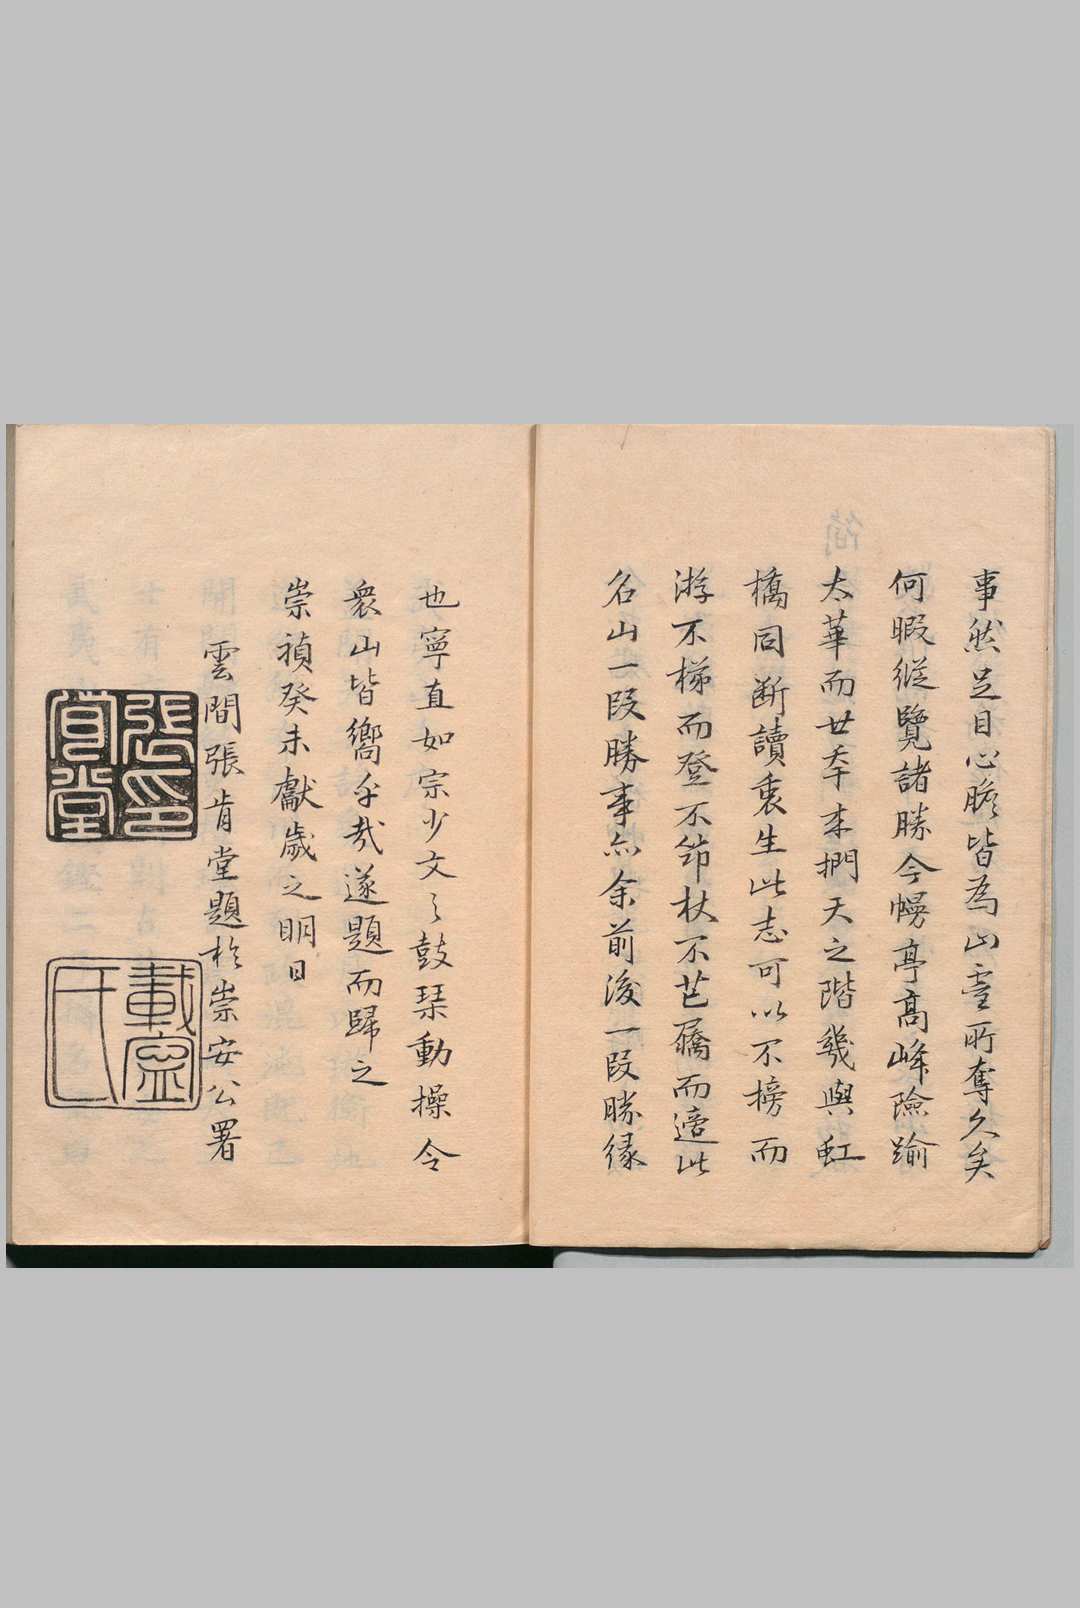 事然足目心膽皆為山靈所奪久矣
何暇縱覽諸勝今幔亭高峰險踰
太華而廿年来捫天之階幾與虹
橋同断讀衷生此志可以不榜而
游不梯而登不笻杖不芒屩而適此
名山一段勝事亦余前後一段勝緣
也寧直如宗少文之鼓琹動操令
衆山皆嚮乎哉遂題而歸之
崇禎癸未獻歲之明日
雲間張肯堂題於崇安公署
張肯堂印
載寧氏